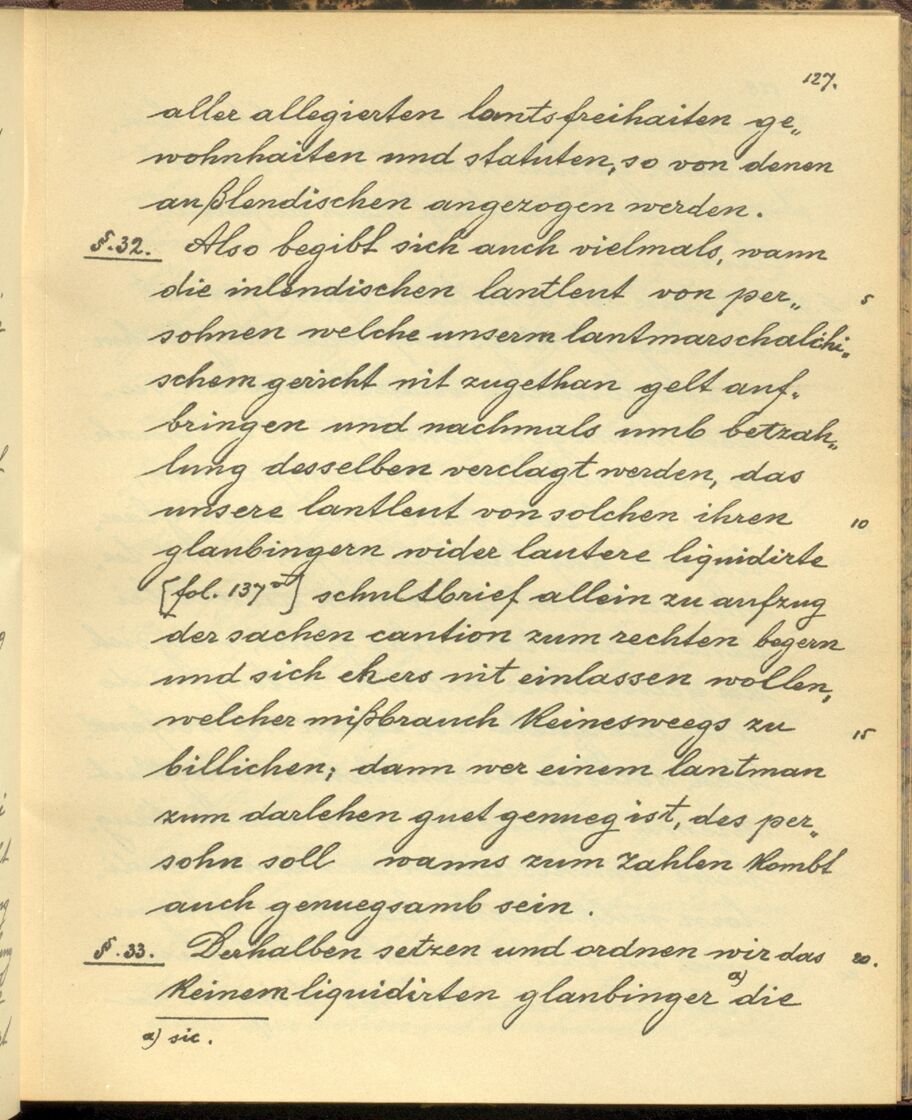 127.
aller allegierten lantsfreihaiten ge„
wohnhaiten und statuten, so von denen
außlendischen angezogen werden.
§.32. Also begibt sich auch vielmals, wann
die inlendischen lantleut von per„ 5
sohnen welche unserm lantmarschalchi„
schem gericht nit zugethan gelt auf„
bringen und nachmals umb betzah„
lung desselben verclagt werden, das
unsere lantleut von solchen ihren 10
glaubingern wider lautere liquidirte
[fol. 137a] schultbrief allein zu aufzug
der sachen caution zum rechten begern
und sich ehers nit einlassen wollen,
welcher mißbrauch keinesweegs zu 15
billichen; dann wer einem lantman
zum darlehen guet genueg ist, des per„
sohn soll wanns zum zahlen kombt
auch genuegsamb sein.
§.33. Derhalben setzen und ordnen wir das 20.
keinem liquidirten glaubinger a) die
a) sic.